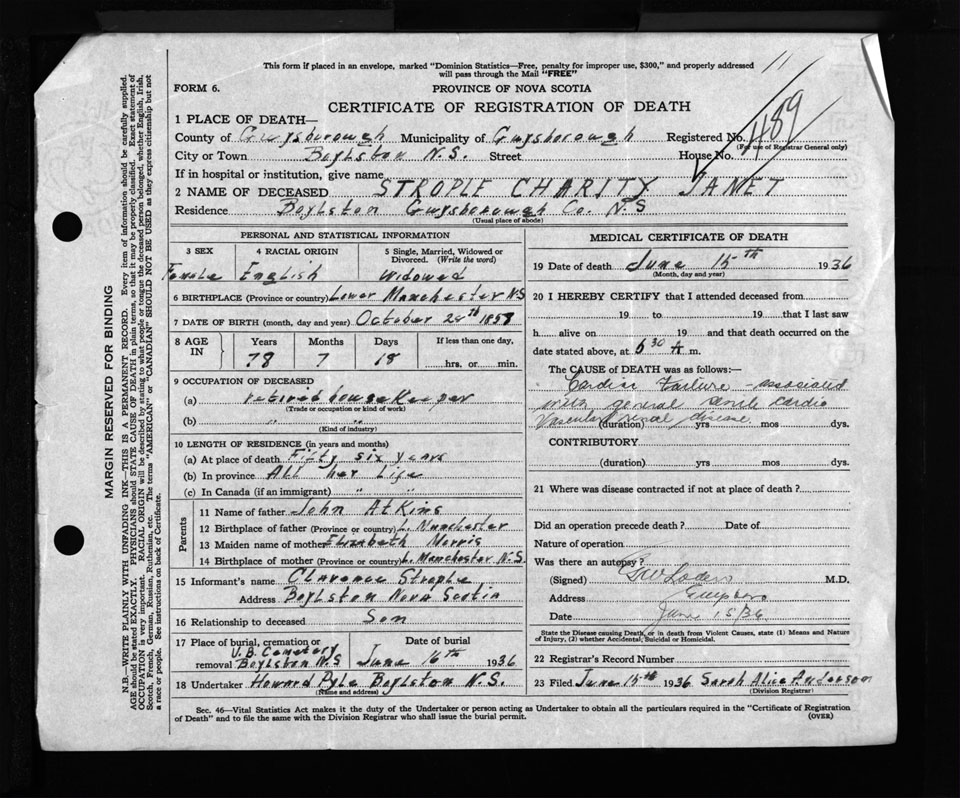 11
This form if placed in an envelope, marked "Dominion Statistics—Free, penalty for improper use, $300," and properly addressed
will pass through the Mail "FREE"
FORM 6.
PROVINCE OF NOVA SCOTIA
CERTIFICATE OF REGISTRATION OF DEATH
1 PLACE OF DEATH—
County of Guysborough Municipality of Guysborough Registered No. 489
(For use of Registrar General only)
City or Town Boylston N.S. Street House No.
If in hospital or institution, give name
2 NAME OF DECEASED STROPLE CHARITY JANET
Residence Boylston Guysborough Co. N.S
(Usual place of abode)
PERSONAL AND STATISTICAL INFORMATION
3 SEX 4 RACIAL ORIGIN 5 Single, Married, Widowed or
Divorced. (Write the word)
Female English Widowed
6 BIRTHPLACE (Province or country) Lower Manchester N.S
7 DATE OF BIRTH (month, day and year) October 28th 1858
8 AGE IN Years Months Days If less than one day,
78 7 18 hrs. or min.
9 OCCUPATION OF DECEASED
(a) retired housekeeper
(Trade or occupation or kind of work)
(b) " "
(Kind of industry)
10 LENGTH OF RESIDENCE (in years and months)
(a) At place of death Fifty six years
(b) In province All her Life
(c) In Canada (if an immigrant) " "
Parents
11 Name of father John Atkins
12 Birthplace of father (Province or country) L. Manchester
13 Maiden name of mother Elizabeth Morris
14 Birthplace of mother (Province or country) L. Manchester N.S.
15 Informant's name Clarence Strople
Address Boylston Nova Scotia
16 Relationship to deceased Son
17 Place of burial, cremation or removal Date of burial
U.B. Cemetery
Boylston N.S June 16th 1936
18 Undertaker Howard Pyle Boylston N.S.
(Name and address)
MEDICAL CERTIFICATE OF DEATH
19 Date of death June 15th 1936
(Month, day and year)
20 I HEREBY CERTIFY that I attended deceased from
19 to 19 that I last saw
h alive on 19 and that death occurred on
date stated above, at 6 30 A m.
The CAUSE of DEATH was as follows:—
Cardiac Failure - associated
with general senile cardio
Vascular renal disease.
(duration) yrs mos dys.
CONTRIBUTORY
(duration) yrs mos dys.
21 Where was disease contracted if not at place of death?
Did an operation precede death? Date of
Nature of operation
Was there an autopsy?
(Signed) M.D.
Address
Date June 15/36
State the Disease causing Death, or in death from Violent Causes, state (1) Means and Nature
of Injury, (2) whether Accidental, Suicidal or Homicidal.
22 Registrar's Record Number
23 Filed June 15th 1936 Sarah Alice Anderson
(Division Registrar)
Sec. 46—Vital Statistics Act makes it the duty of the Undertaker or person acting as Undertaker to obtain all the particulars required in the "Certificate of Registration
of Death" and to file the same with the Division Registrar who shall issue the burial permit.
(OVER)
MARGIN RESERVED FOR BINDING
N.B.—WRITE PLAINLY WITH UNFADING INK—THIS IS A PERMANENT RECORD. Every item of information should be carefully supplied.
AGE should be stated EXACTLY. PHYSICIANS should STATE CAUSE OF DEATH in plain terms, so that it may be properly classified. Exact statement of
OCCUPATION is very important. RACIAL ORIGIN will be described by stating to what people or tongue the deceased person belonged, whether English, Irish,
Scotch, French, German, Russian, Ruthenian, etc. The terms "AMERICAN" or "CANADIAN" SHOULD NOT BE USED as they express citizenship but not
a race or people. See instructions on back of Certificate.